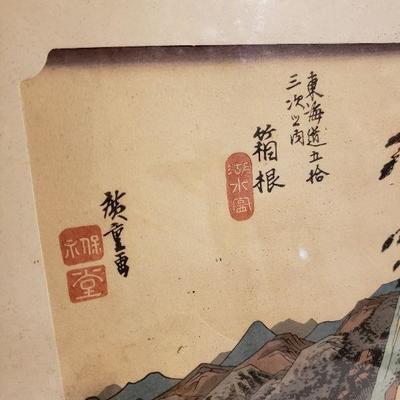 東海道五拾
三次之内
箱根
湖水圖
廣重画
保永堂